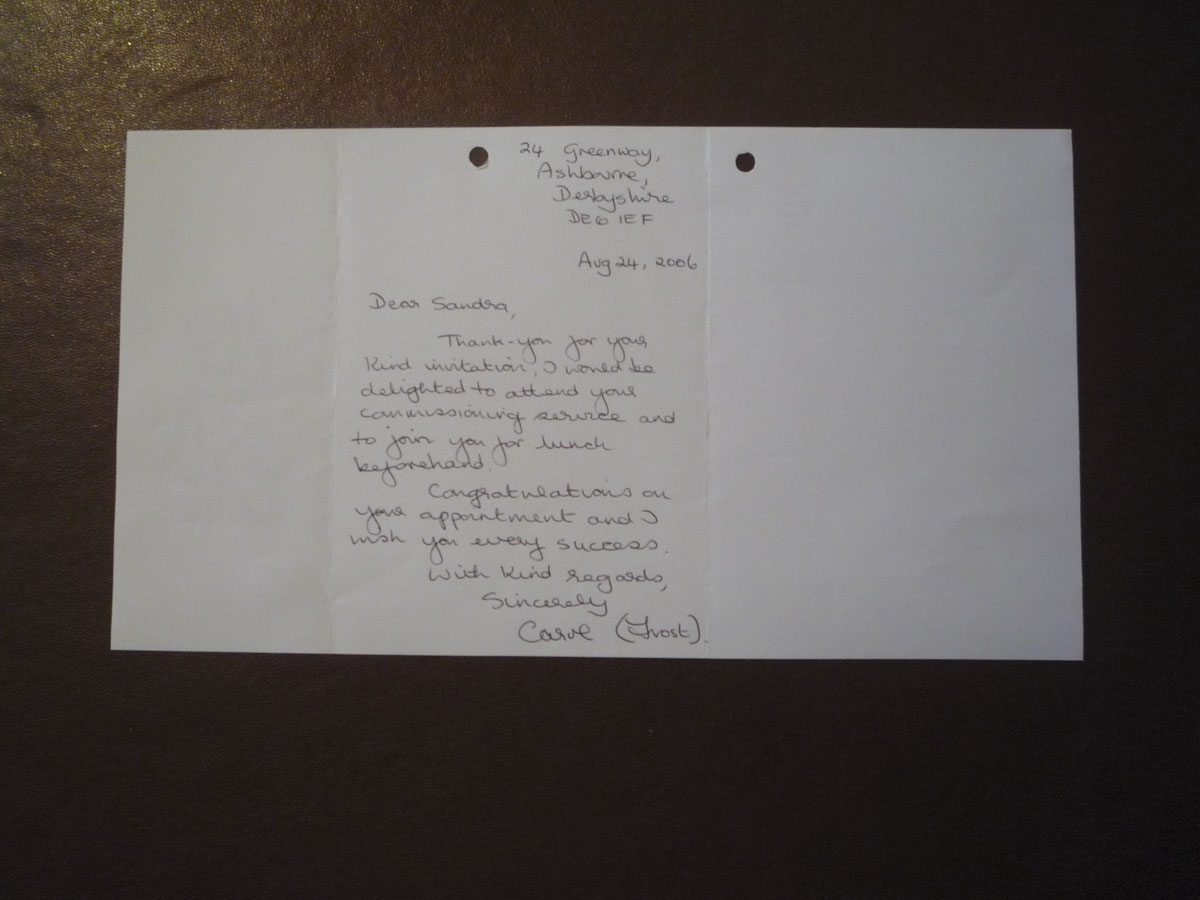 24 Greenway,
Ashbourne,
Derbyshire
DE6 1EF
Aug 24, 2006
Dear Sandra,
Thank-you for your
kind invitation, I would be
delighted to attend your
commissioning service and
to join you for lunch
beforehand.
Congratulations on
your appointment and I
wish you every success.
With kind regards,
Sincerely
Carole (Frost).